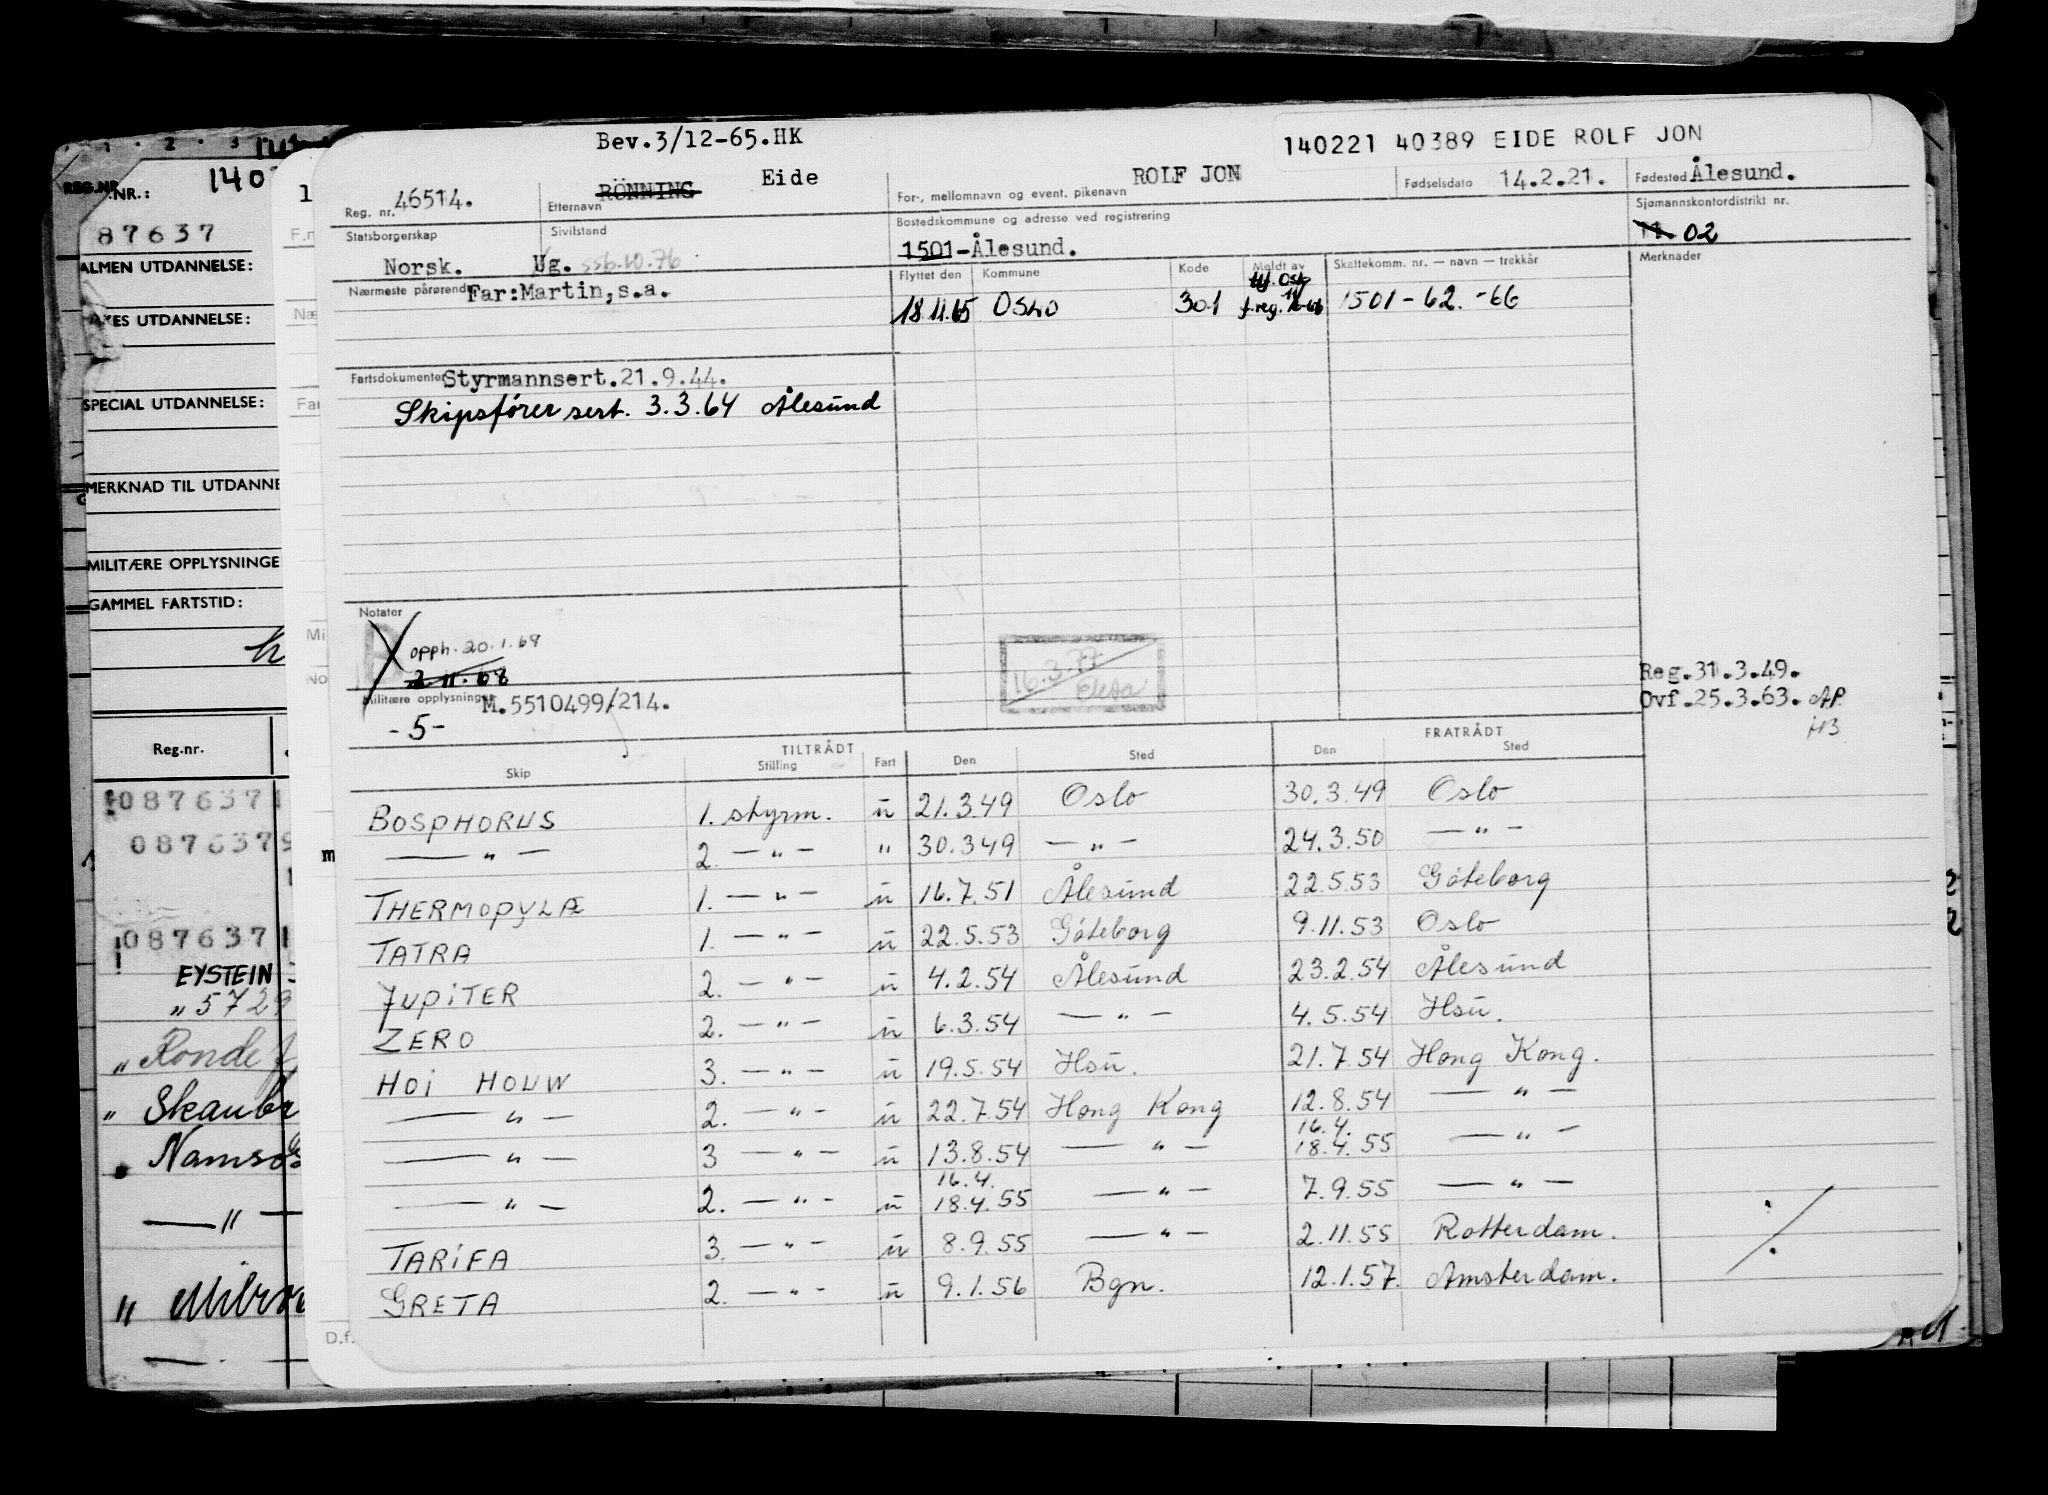 Bev.3/12-65.HK
140221 40389 EIDE ROLF JON
Reg. nr. 46514.
Etternavn RÖNNING Eide
For-, mellomnavn og event. pikenavn ROLF JON
Fødselsdato 14.2.21.
Fødested Ålesund.
Statsborgerskap Norsk.
Sivilstand Ug. 556.10.76
Bostedskommune og adresse ved registrering
1501-Ålesund.
Sjømannskontordistrikt nr.
11. 02
Nærmeste pårørende Far:Martin,s.a.
Flyttet den Kommune Kode Meldt av Skattekomm. nr. — navn — trekkår Merknader
18.11.65 OSLO 301 f.reg. 1501-62.-66
Fartsdokumenter Styrmannsert.21.9.44.
Skipsfører sert. 3.3.64 Ålesund
Notater
opph. 20.1.69
2.11.68
16.3.77
Elisa
Militære opplysninger M.5510499/214.
-5-
Reg.31.3.49.
Ovf.25.3.63. AP.
HB
TILTRÅDT FRATRÅDT
Skip Stilling Fart Den Sted Den Sted
BOSPHORUS 1. styrm. u 21.3.49 Oslo 30.3.49 Oslo
—"— 2. —"— " 30.349 —"— 24.3.50 —"—
THERMOPYLÆ 1. —"— u 16.7.51 Ålesund 22.5.53 Göteborg
TATRA 1. —"— u 22.5.53 Göteborg 9.11.53 Oslo
JUPITER 2. —"— u 4.2.54 Ålesund 23.2.54 Ålesund
ZERO 2. —"— u 6.3.54 —"— 4.5.54 Hsu.
HOI HOUW 3. —"— u 19.5.54 Hsu. 21.7.54 Hong Kong.
—"— 2. —"— u 22.7.54 Hong Kong 12.8.54 —"—
—"— 3 —"— u 13.8.54 —"— 16.4. 18.4.55 —"—
—"— 2. —"— u 16.4. 18.4.55 —"— 7.9.55 —"—
TARIFA 3. —"— u 8.9.55 —"— 2.11.55 Rotterdam.
GRETA 2. —"— u 9.1.56 Bgn. 12.1.57. Amsterdam.
REG.NR.
.NR.:
87637
ALMEN UTDANNELSE:
SPECIAL UTDANNELSE:
MERKNAD TIL UTDANNE
MILITÆRE OPPLYSNINGE
GAMMEL FARTSTID:
Reg.nr.
0876371
0876379
0876371
EYSTEIN
"5729
" Ronde
" Skaubr
Namsos
—"—
D.f.